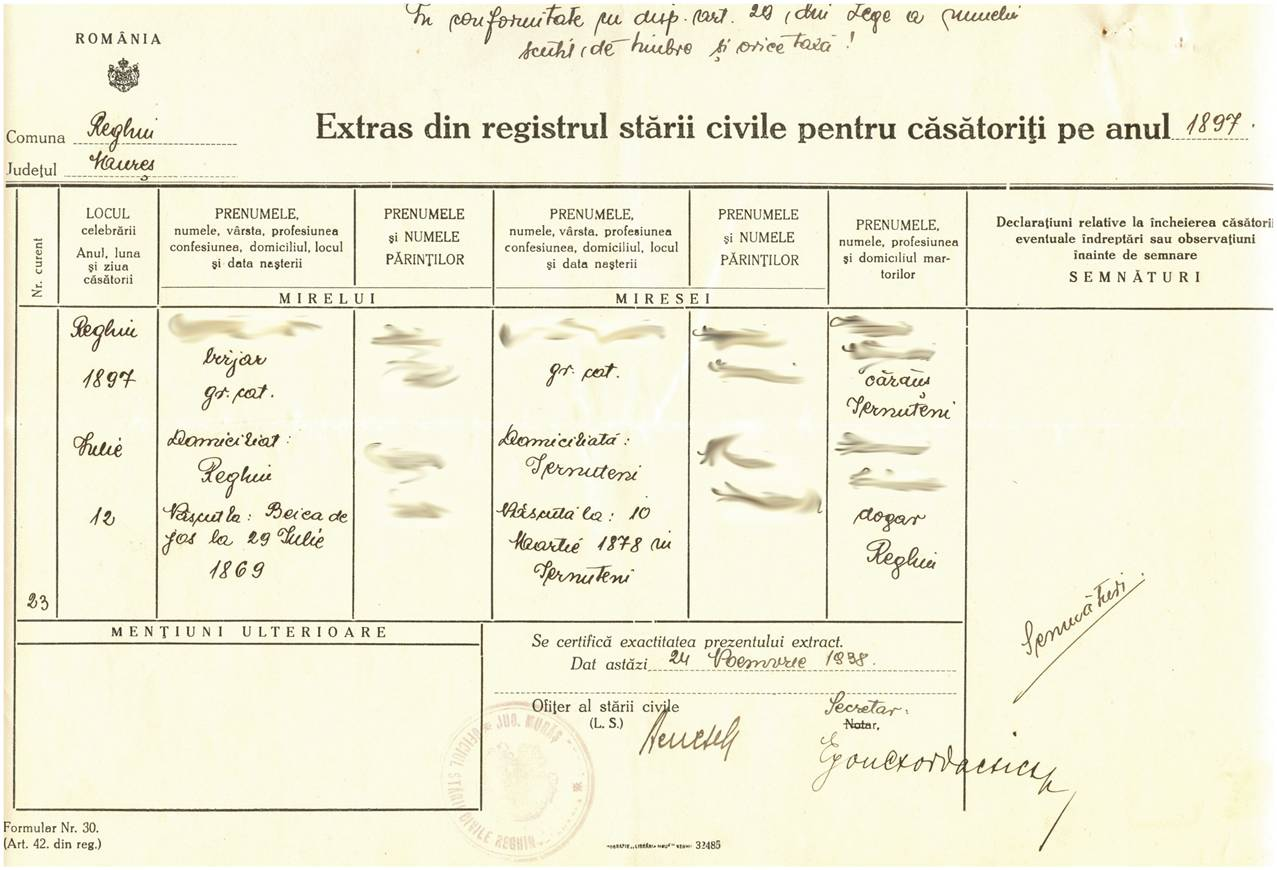 În conformitate cu disp. art. 29, din Lege a numelui
scutit de timbru și orice taxă!
ROMÂNIA
Comuna Reghin
Județul Mureș
Extras din registrul stării civile pentru căsătoriți pe anul 1897.
Nr. curent
LOCUL
celebrării
Anul, luna
și ziua
căsătorii
PRENUMELE,
numele, vârsta, profesiunea
confesiunea, domiciliul, locul
și data nașterii
PRENUMELE
și NUMELE
PĂRINȚILOR
MIRELUI
PRENUMELE,
numele, vârsta, profesiunea
confesiunea, domiciliul, locul
și data nașterii
PRENUMELE
și NUMELE
PĂRINȚILOR
MIRESEI
PRENUMELE,
numele, profesiunea
și domiciliul mar-
torilor
Declarațiuni relative la încheierea căsătorii
eventuale îndreptări sau observațiuni
înainte de semnare
SEMNĂTURI
23
Reghin
1897
Iulie
12
birjar
gr. cat.
Domiciliat:
Reghin
Născut la: Beica de
jos la 29 Iulie
1869
gr. cat.
Domiciliată:
Iernuteni
Născută la: 10
Martie 1878 in
Iernuteni
cărăuș
Iernuteni
dogar
Reghin
Semnături.
MENȚIUNI ULTERIOARE
Se certifică exactitatea prezentului extract.
Dat astăzi 24 Noemvrie 1938.
Ofițer al stării civile
(L. S.)
Secretar:
Notar,
JUD. MURĂȘ
OFICIUL STĂRII CIVILE REGHIN
Formular Nr. 30.
(Art. 42. din reg.)
32485